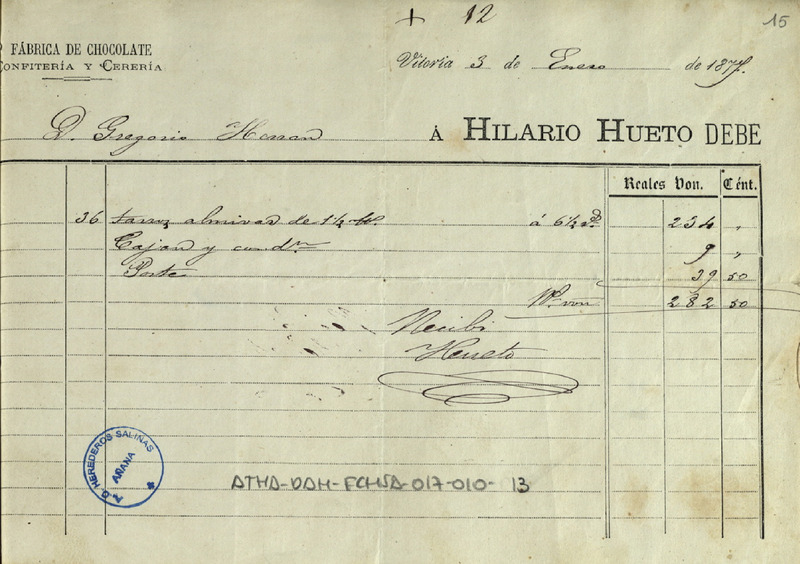 + 12
15
FÁBRICA DE CHOCOLATE
CONFITERÍA Y CERERÍA
Vitoria 3 de Enero de 187
D. Gregorio Herrán Á HILARIO HUETO DEBE
Reales Von. Cént.
36 Tarros almivar de 1½ á 6½ 234 "
Cajas y cond.n 9 "
Porte 39 50
Rs. von 282 50
Recibí
Hueto
P. O. HEREDEROS SALINAS
AÑANA
ATHA-DAH-FCHSA-017-010-13